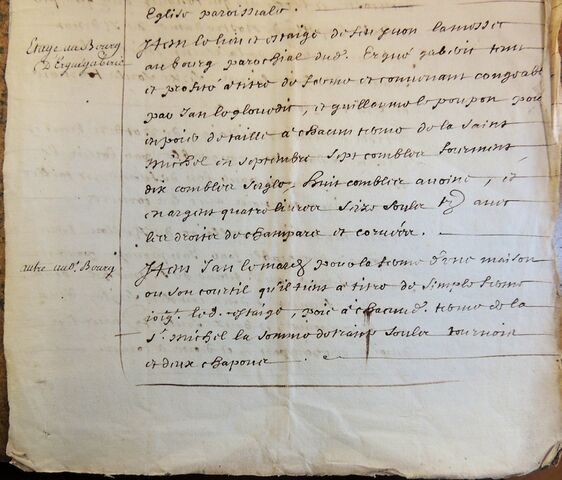 Eglise paroissiale.
Etage au Bourg
D'Erguegaberic
Item le lieu et estaige de feu yvon la
au bourg parochial dud. Ergué gaberic tenu
et profité a titre de ferme et convenant congeable
par Jan le et guillaume le poupon pour
en poier de taille a chacun terme de la Saint
Michel en septembre Sept combles fourment
dix combles seigle, huit combles avoine, et
en argent quatre livres seize soulz tz avec
les droits de champars et corvées.
autre aud. Bourg
Item Jan le pour la ferme d'une maison
ou son courtil qu'il tient a titre de simple ferme
led. estaige, poie a chacun d. terme de la
St. michel la somme de trante soulz tournois
et deux chapons.